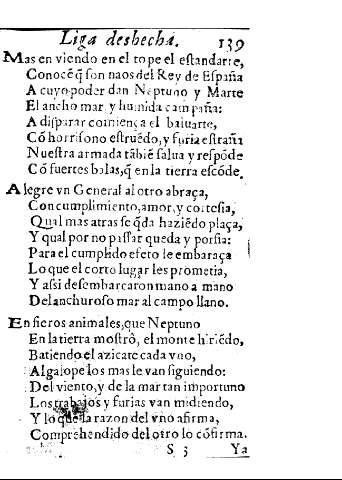 Liga deshecha. 139
Mas en viendo en el tope el estandarte,
Conocẽ q̃ son naos del Rey de España
A cuyo poder dan Neptuno y Marte
El ancho mar, y humida campaña:
A disparar comiença el baluarte,
Cõ horrisono estruẽdo, y furia estraña
Nuestra armada tãbiẽ salua y respõde
Cõ fuertes balas, q̃ en la tierra escõde.
Alegre vn General al otro abraça,
Con cumplimiento, amor, y cortesia,
Qual mas atras se q̃da haziẽdo plaça,
Y qual por no passar queda y porfia:
Para el cumplido efeto le embaraça
Lo que el corto lugar les prometia,
Y assi desembarcaron mano a mano
Del anchuroso mar al campo llano.
En fieros animales, que Neptuno
En la tierra mostrô, el monte hiriẽdo,
Batiendo el azicate cada vno,
Al galope los mas le van siguiendo:
Del viento, y de la mar tan importuno
Los trabajos y furias van midiendo,
Y lo que la razon del vno afirma,
Comprehendido del otro lo cõfirma.
S 3 Ya